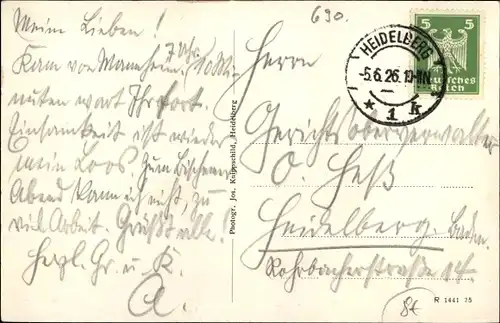 Meine Lieben!
Kam von Mannheim, 7 Uhr, 10 Mi-
nuten wart Ihr fort.
Einsamkeit ist wieder
mein Loos. Zum
Abend kann ich nicht, zu
viel Arbeit. Grüßt alle!
Herzl. Gr. u. K.
A.
Photogr. Jos. Knippschild, Heidelberg
690.
HEIDELBERG
-5.6.26.
* 1 k
5 5
Deutsches
Reich
Herrn
Gerichtsoberverwalter
O. Heß
Heidelberg. Baden.
Rohrbacherstraße 14.
R 1441 25